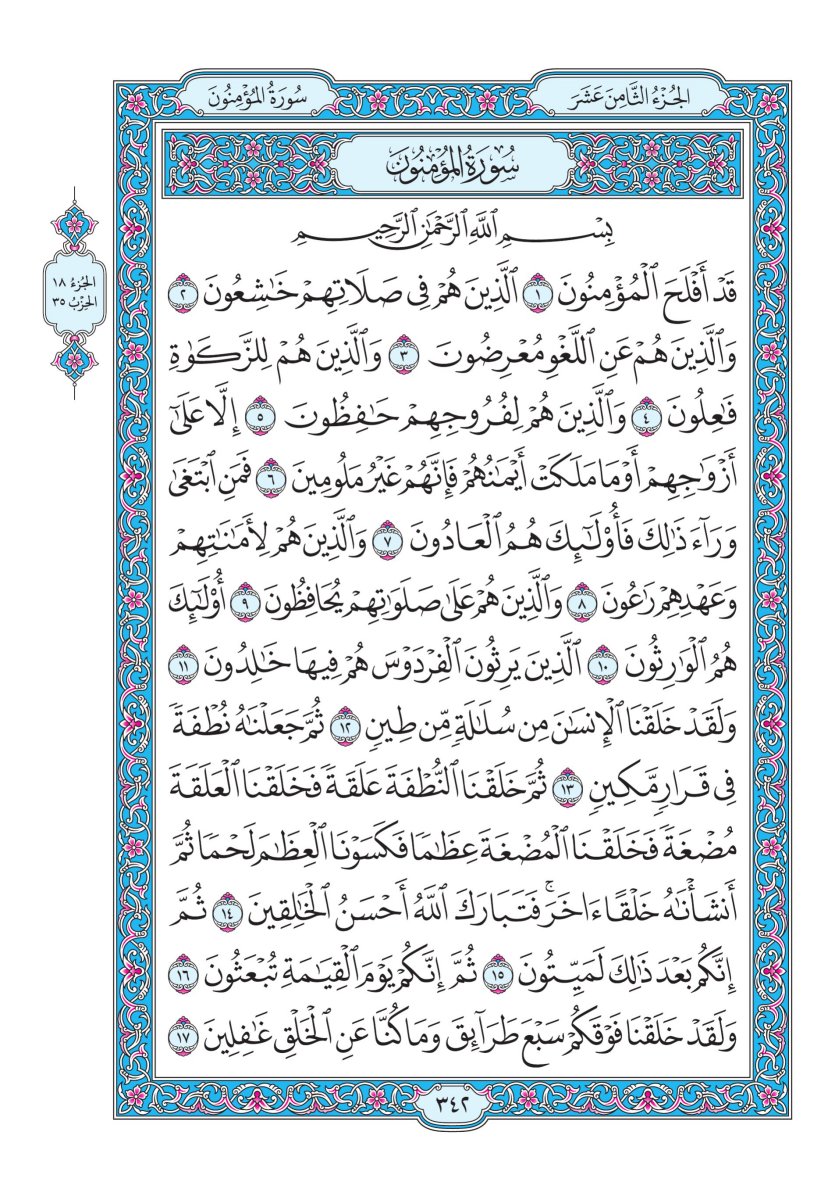 الجُزْءُ الثَّامِنَ عَشَرَ
سُورَةُ المُؤْمِنُونَ
سُورَةُ المُؤْمِنُونَ
بِسْمِ ٱللَّهِ ٱلرَّحْمَٰنِ ٱلرَّحِيمِ
الجُزْءُ ١٨
الحِزْبُ ٣٥
قَدْ أَفْلَحَ ٱلْمُؤْمِنُونَ ١ ٱلَّذِينَ هُمْ فِى صَلَاتِهِمْ خَٰشِعُونَ ٢
وَٱلَّذِينَ هُمْ عَنِ ٱللَّغْوِ مُعْرِضُونَ ٣ وَٱلَّذِينَ هُمْ لِلزَّكَوٰةِ
فَٰعِلُونَ ٤ وَٱلَّذِينَ هُمْ لِفُرُوجِهِمْ حَٰفِظُونَ ٥ إِلَّا عَلَىٰٓ
أَزْوَٰجِهِمْ أَوْ مَا مَلَكَتْ أَيْمَٰنُهُمْ فَإِنَّهُمْ غَيْرُ مَلُومِينَ ٦ فَمَنِ ٱبْتَغَىٰ
وَرَآءَ ذَٰلِكَ فَأُو۟لَٰٓئِكَ هُمُ ٱلْعَادُونَ ٧ وَٱلَّذِينَ هُمْ لِأَمَٰنَٰتِهِمْ
وَعَهْدِهِمْ رَٰعُونَ ٨ وَٱلَّذِينَ هُمْ عَلَىٰ صَلَوَٰتِهِمْ يُحَافِظُونَ ٩ أُو۟لَٰٓئِكَ
هُمُ ٱلْوَٰرِثُونَ ١٠ ٱلَّذِينَ يَرِثُونَ ٱلْفِرْدَوْسَ هُمْ فِيهَا خَٰلِدُونَ ١١
وَلَقَدْ خَلَقْنَا ٱلْإِنسَٰنَ مِن سُلَٰلَةٍ مِّن طِينٍ ١٢ ثُمَّ جَعَلْنَٰهُ نُطْفَةً
فِى قَرَارٍ مَّكِينٍ ١٣ ثُمَّ خَلَقْنَا ٱلنُّطْفَةَ عَلَقَةً فَخَلَقْنَا ٱلْعَلَقَةَ
مُضْغَةً فَخَلَقْنَا ٱلْمُضْغَةَ عِظَٰمًا فَكَسَوْنَا ٱلْعِظَٰمَ لَحْمًا ثُمَّ
أَنشَأْنَٰهُ خَلْقًا ءَاخَرَ ۚ فَتَبَارَكَ ٱللَّهُ أَحْسَنُ ٱلْخَٰلِقِينَ ١٤ ثُمَّ
إِنَّكُم بَعْدَ ذَٰلِكَ لَمَيِّتُونَ ١٥ ثُمَّ إِنَّكُمْ يَوْمَ ٱلْقِيَٰمَةِ تُبْعَثُونَ ١٦
وَلَقَدْ خَلَقْنَا فَوْقَكُمْ سَبْعَ طَرَآئِقَ وَمَا كُنَّا عَنِ ٱلْخَلْقِ غَٰفِلِينَ ١٧
٣٤٢